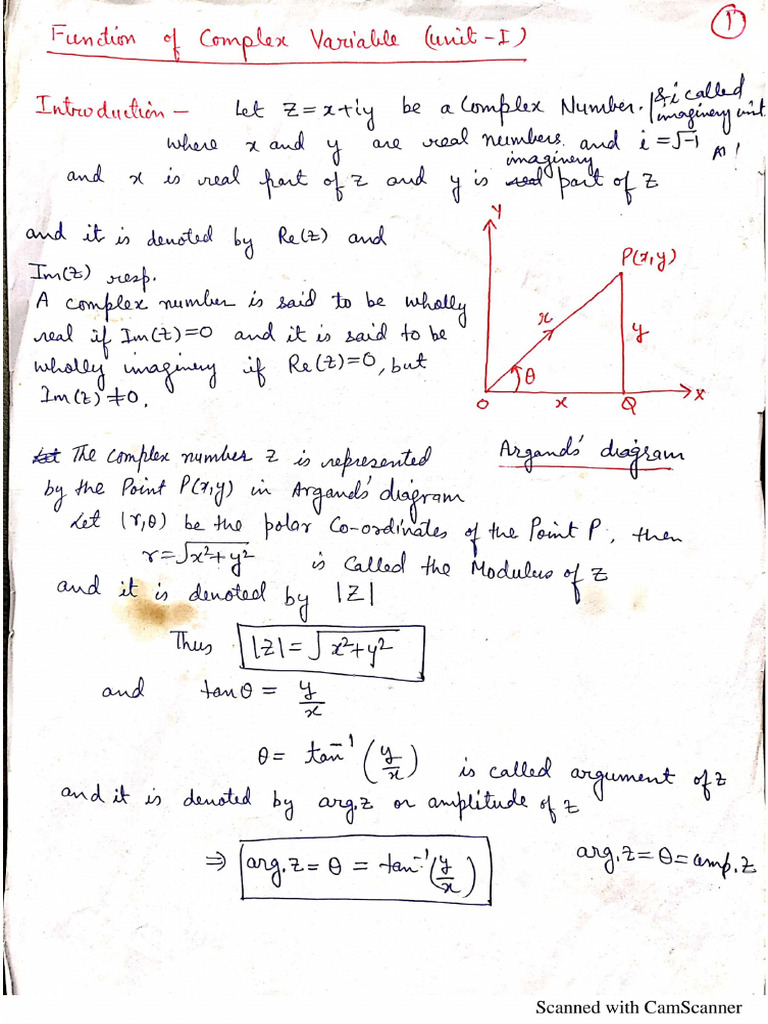 ①
Function of Complex Variable (unit-I)
Introduction – Let z = x+iy be a Complex Number. & i called
imaginery unit
where x and y are real numbers and i = √-1
imaginery
and x is real part of z and y is real part of z
and it is denoted by Re(z) and
Im(z) resp.
A complex number is said to be wholly
real if Im(z)=0 and it is said to be
wholly imaginery if Re(z)=0, but
Im(z) ≠ 0.
Y
P(x,y)
r
y
θ
O x Q X
Argand's diagram
Let The complex number z is represented
by the Point P(x,y) in Argand's diagram
Let (r,θ) be the polar Co-ordinates of the Point P, then
r = √x²+y² is called the Modulus of z
and it is denoted by |z|
Thus |z| = √x²+y²
and tanθ = y/x
θ = tan⁻¹(y/x) is called argument of z
and it is denoted by arg.z or amplitude of z
⇒ arg.z = θ = tan⁻¹(y/x) arg.z = θ = amp.z
Scanned with CamScanner